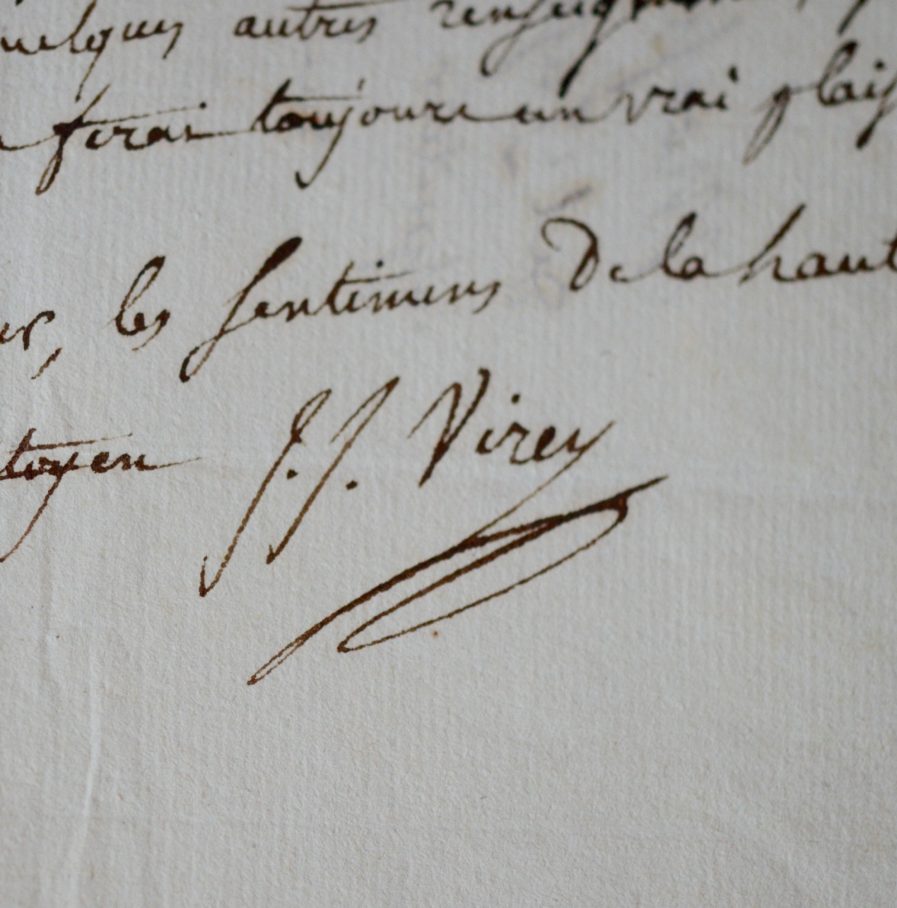 uelques autres renseignemens,
ferai toujours un vrai plais
les sentimens De la haut
toyen J. J. Virey